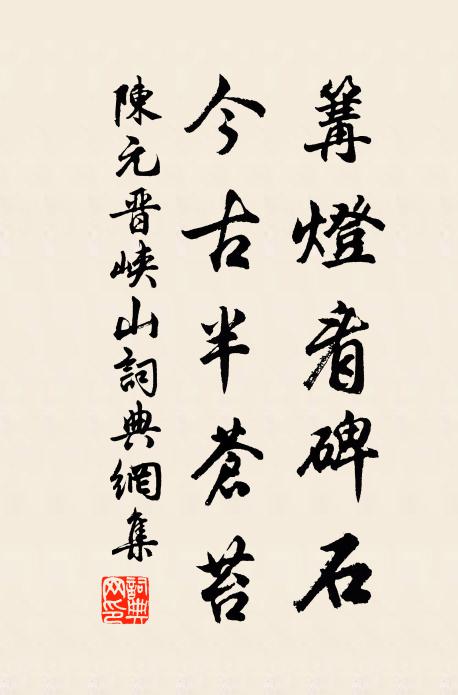 篝燈看碑石
今古半蒼苔
陳元晋峽山詞典網集
詞典网印